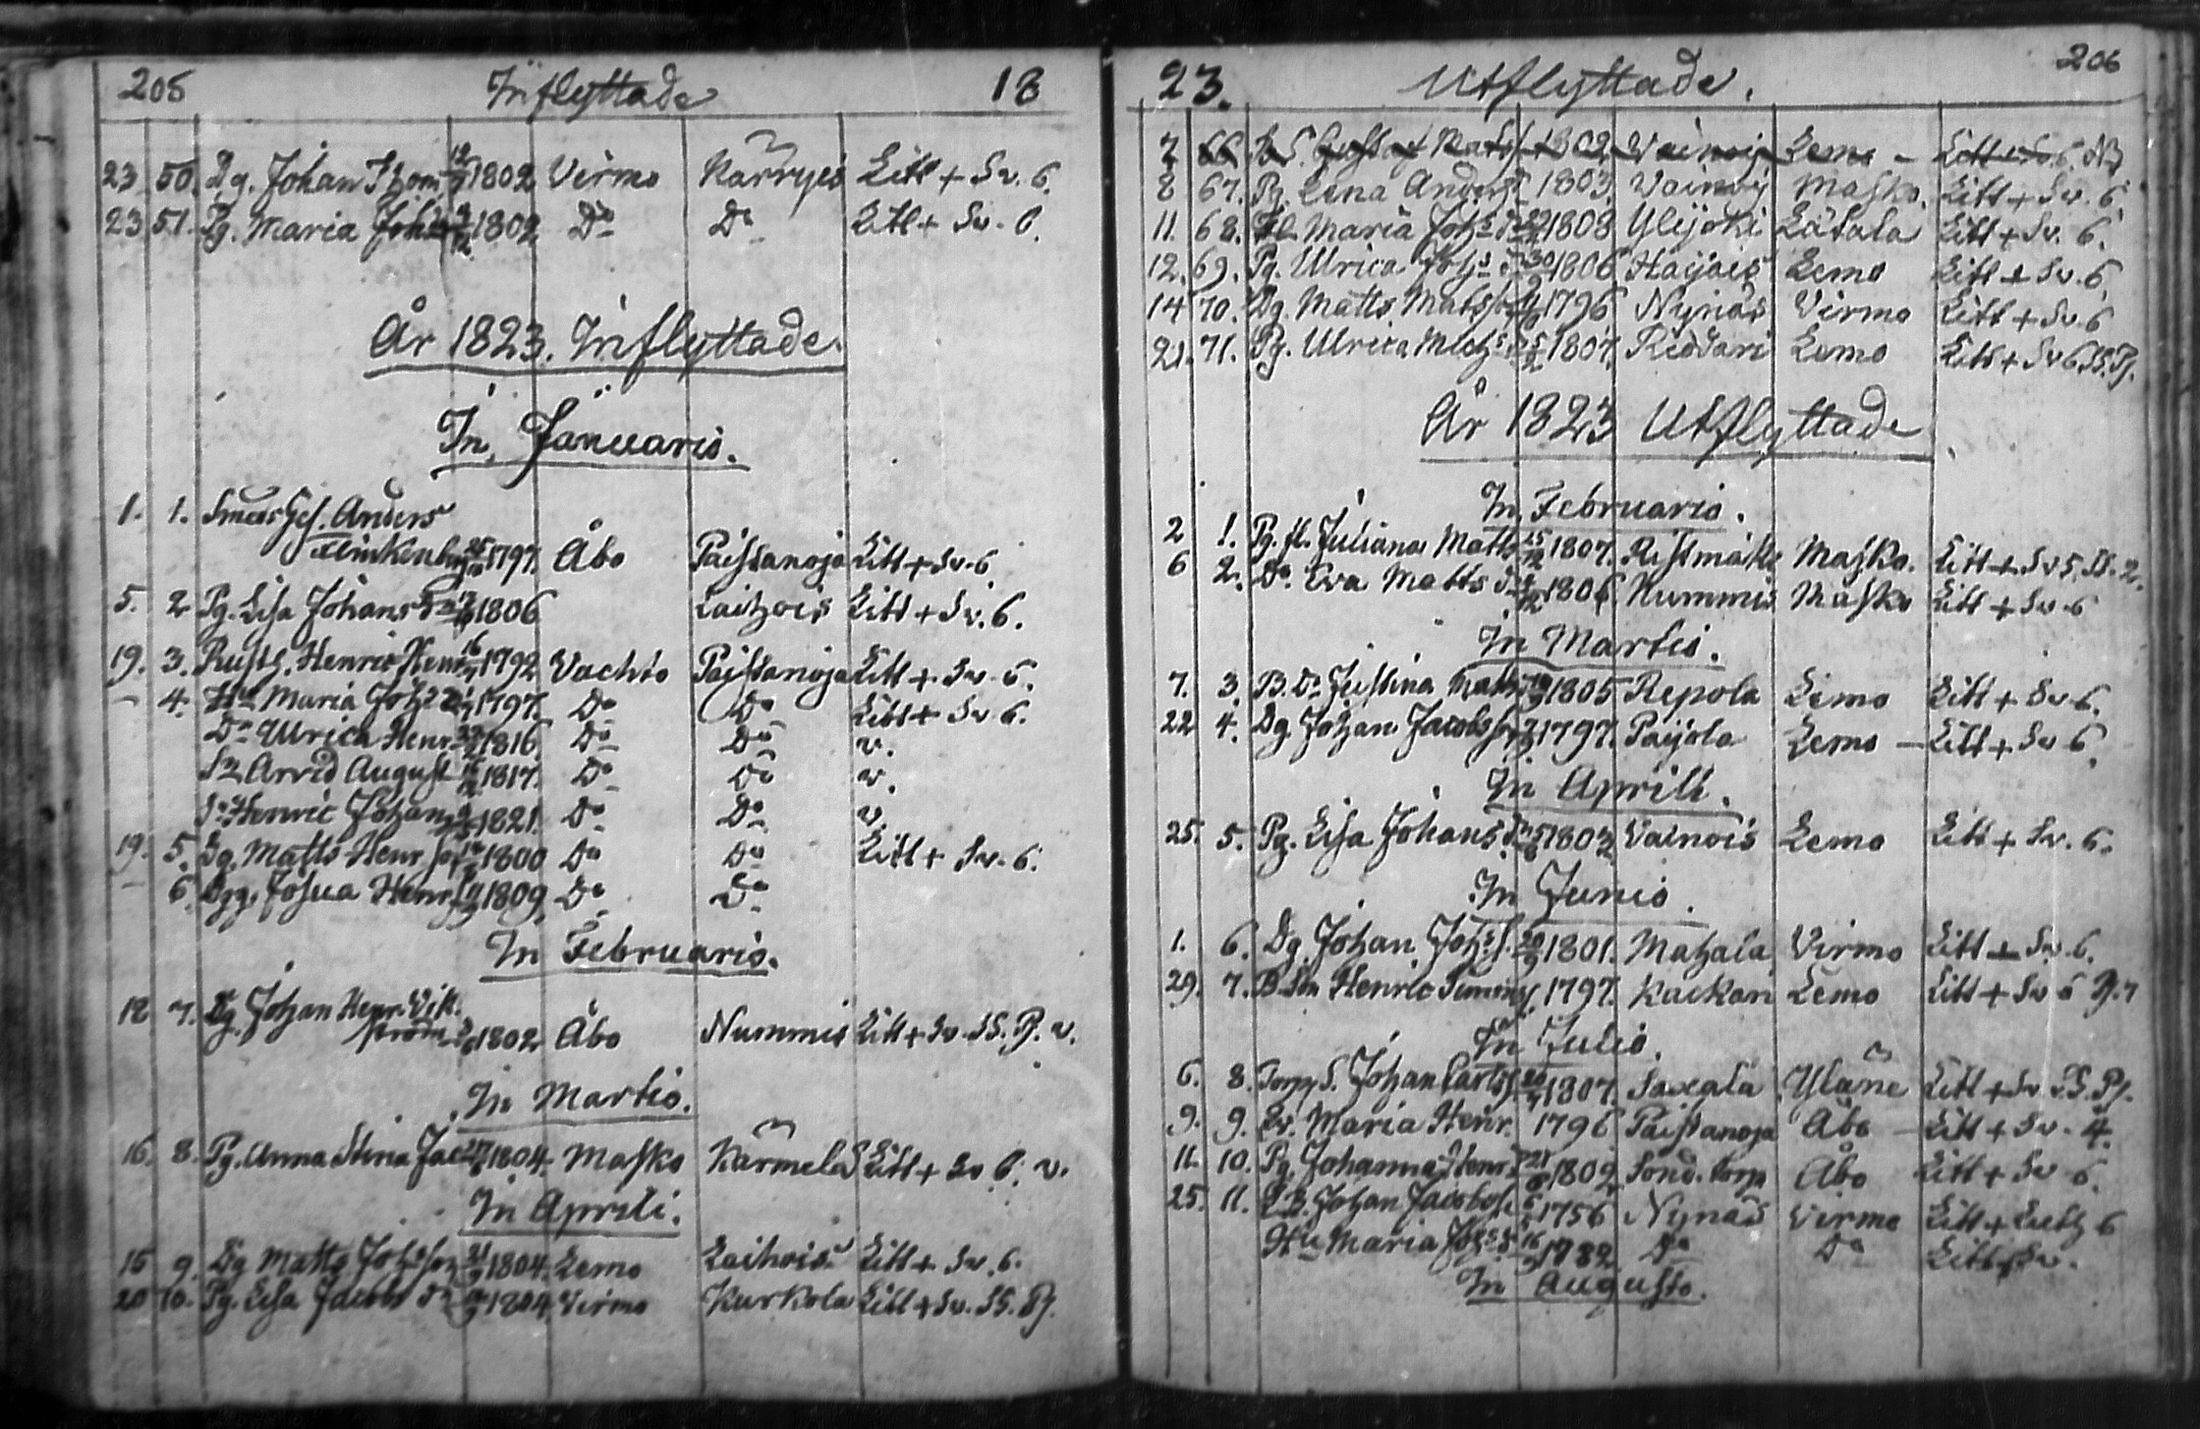 205 Inflyttade 18
23 50. Dg. Johan Thom 1802 Virmo Karryis Litt + Sv. 6.
23 51. Pg. Maria Joh 1802 Do Do Litt + Sv. 6.
År 1823. Inflyttade.
In Januario.
1. 1. Smeds Ges. Anders
Flinkenberg 1797. Åbo Paistanoja Litt + Sv. 6.
5. 2 Pg. Lisa Johans 1806 Laihois Litt + Sv. 6.
19. 3. Rusth. Henric Henr 16 1792 Vachto Paistanoja Litt + Sv. 6.
– 4. Hu Maria Joh 1797. Do Do Litt + Sv 6.
Dr Ulrica Henr 1816 Do Do v.
Sn Arvid August 1817. Do Do v.
Sn Henric Johan 1821. Do Do v
19. 5. Dg. Matts Henr 1800 Do Do Litt + Sv. 6.
– 6. Dgg. Josua Henr 1809, Do Do
In Februario.
12 7. Dg Johan Henr. Vik
ström 1802 Åbo Nummis Litt + Sv. SS. Pf. v.
In Martio.
16. 8. Pg. Anna Stina Jac 1804. Masko Karmela Litt + Sv 6. v.
In Aprili.
15 9. Dg Matts Johsson 1804. Lemo Laihois Litt + Sv. 6.
20 10. Pg. Lisa Jacobs 1804. Virmo Kurkola Litt + Sv. SS. Pf.
23. Utflyttade. 206
7 66 Gustaf Mats 1802 Vainoij Lemo – Litt
8 67. Pg. Lena Anders 1803. Vainoij Masko. Litt + Sv. 6
11. 68. Maria Johs 1808 Ylijoki Lätala Litt + Sv. 6.
12. 69. Pg. Ulrica Johs 30 1806 Haijais Lemo Litt + Sv. 6
14 70. Dg. Matts Matsson 1796 Nynäs Virmo Litt + Sv 6
21. 71. Pg. Ulrica Mich 1807. Riddari Lemo Litt + Sv 6 SS. Pf.
År 1823 Utflyttade
In Februario.
2 1. Pg. fl. Juliana Matts 1807. Ristmäki Masko. Litt + Sv 5 SS. 2.
6 2. Do. Eva Matts 1806. Nummis Masko Litt + Sv 6
In Martio.
7. 3. B. Dr Justina Matts 1805 Repola Lemo Litt + Sv 6.
22 4. Dg. Johan Jacobsson 1797. Paijola Lemo – Litt + Sv 6.
In Aprili.
25. 5. Pg. Lisa Johans 1802 Vainois Lemo Litt + Sv. 6.
In Junio.
1. 6. Dg. Johan Johs. S. 1801. Mahala Virmo Litt + Sv. 6.
29. 7. B. Son Henric Simons 1797. Kackari Lemo Litt + Sv 6
In Julio.
6. 8. Torp. S. Johan Carls 1807. Saxala Yläne Litt + Sv. SS. Pf.
9. 9. Maria Henr. 1796 Paistanoja Åbo – Litt + Sv. 4.
11. 10. Pg. Johanna Henr 1802 Sond. torp Åbo Litt + Sv 6.
25. 11. Johan Jacobss. 1756 Nynäs Virmo Litt + 6
Hu Maria Johs 1782 Do Do Litt + Sv.
In Augusto.